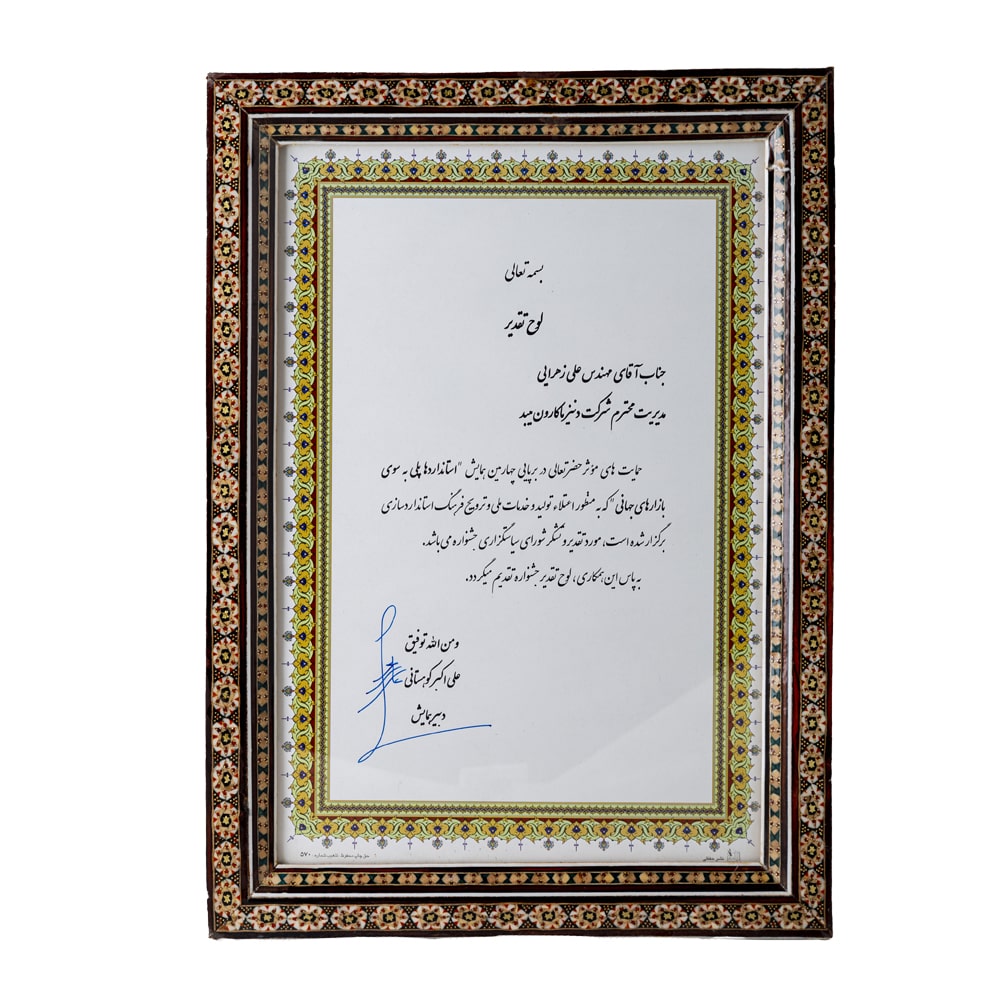 بسمه تعالی
لوح تقدیر
جناب آقای مهندس علی زهرایی
مدیریت محترم شرکت دنیز ماکارون میبد
حمایت های مؤثر حضرتعالی در برپایی چهارمین همایش "استانداردها پلی به سوی
بازارهای جهانی" که به منظور اعتلاء تولید و خدمات ملی و ترویج فرهنگ استانداردسازی
برگزار شده است، مورد تقدیر و تشکر شورای سیاستگزاری جشنواره می باشد.
به پاس این همکاری، لوح تقدیر جشنواره تقدیم میگردد.
ومن الله توفیق
علی اکبر کوهستانی
دبیر همایش
حق چاپ محفوظ ۵۷۰